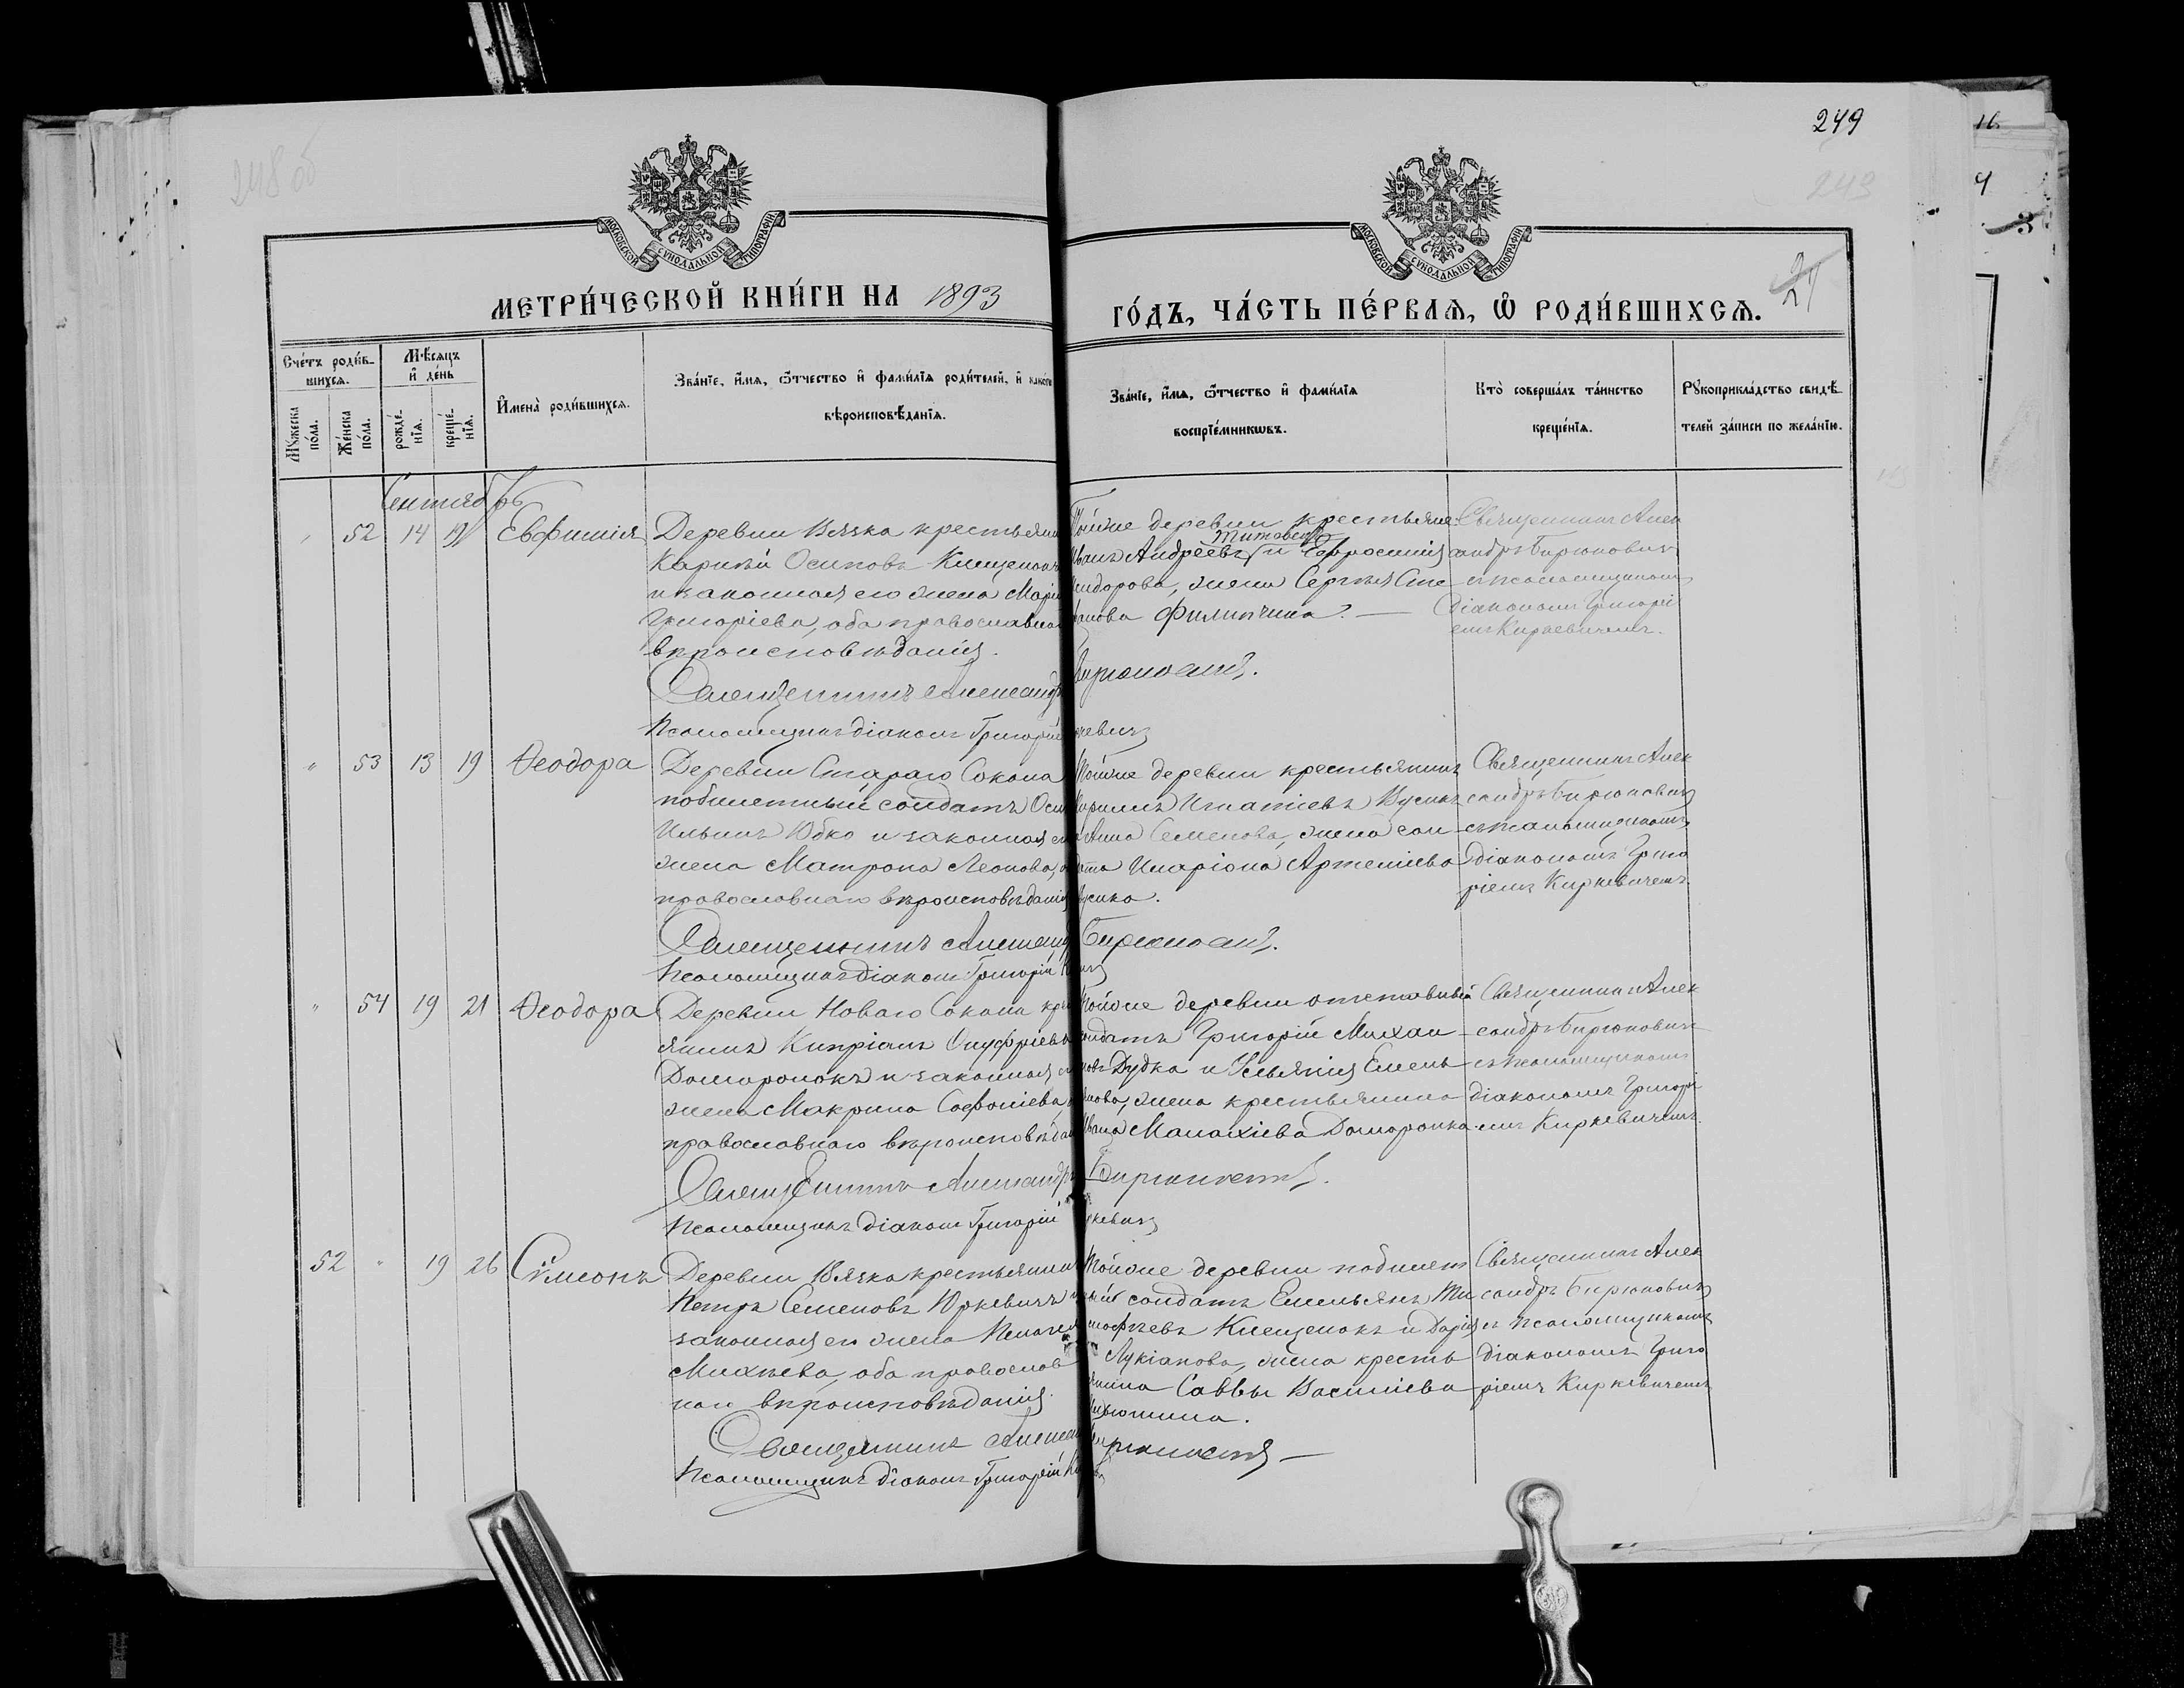 249
248 об
243
МОСКОВСКОЙ СУНОДАЛЬНОЙ ТИПОГРАФІИ
МОСКОВСКОЙ СУНОДАЛЬНОЙ ТИПОГРАФІИ
МЕТРИ́ЧЕСКОЙ КНИ́ГИ НА 1893
ГО́ДЪ, ЧА́СТЬ ПЕ́РВАѦ, Ѡ҆ РОДИ́ВШИХСѦ.
Сче́тъ роди́в-
шихся.
Мѣ́сяцъ
и҆ де́нь
Мꙋжеска
по́ла.
Же́нска
по́ла.
рожде́-
нїя.
креще́-
нїя.
И҆мена̀ роди́вшихся.
Зва́нїе, и҆́мя, ѻ҆́тчество и҆ фами́лїя роди́телей, и҆ како́гѡ
вѣроисповѣ́данїя.
Зва́нїе, и҆́мя, ѻ҆́тчество и҆ фами́лїя
воспрїе́мникѡвъ.
Кто̀ соверша́лъ та́инство
креще́нїя.
Рꙋкоприкла́дство свидѣ́-
телей за́писи по жела́нїю.
Сентябрь
52 14 19 Евфимія
Деревни Вязка крестьянин
Осиповъ Клещенокъ
и законная его жена Марія
Григоріева, оба православнаго
вѣроисповѣданія.
Священникъ Александръ
Псаломщикъ діаконъ Григорій
Тойже деревни крестьяне
Титовецъ
Иванъ Андреевъ и Евфросинія
Исидорова, жена Сергѣя Сте
панова Филипчика.
Бирюковичъ.
Священникъ Алек
сандръ Бирюковичъ
съ псаломщикомъ
діакономъ Григорі
емъ Киркевичемъ.
" 53 13 19 Ѳеодора
Деревни Стараго Сокола
побилетный солдатъ Осипъ
Ильинъ Юбко и законная его
жена Матрона Леонова, оба
православнаго вѣроисповѣданія
Священникъ Александръ
Псаломщикъ діаконъ Григорій
Тойже деревни крестьянинъ
Кириллъ Игнатіевъ
Анна Семенова, жена сол
дата Иларіона Артеміева
Бирюковичъ.
Священникъ Алек
сандръ Бирюковичъ
съ псаломщикомъ
діакономъ Григо
ріемъ Киркевичемъ.
" 54 19 21 Ѳеодора
Деревни Новаго Сокола кресть
янинъ Кипріанъ Онуфріевъ
Доморонокъ и законная его
жена Макрина Софоніева,
православнаго вѣроисповѣданія
Священникъ Александръ
Псаломщикъ діаконъ Григорій
Тойже деревни отставный
солдатъ Григорій Михаи
ловъ Дудка и Ксенія Емель
янова, жена крестьянина
Ивана Малахіева Доморонка
Бирюковичъ.
Священникъ Алек
сандръ Бирюковичъ
съ псаломщикомъ
діакономъ Григорі
емъ Киркевичемъ.
52 " 19 26 Сѵмеонъ
Деревни Вязка крестьянинъ
Петръ Семеновъ Юркевичъ и
законная его жена Пелагея
Михѣева, оба православ
наго вѣроисповѣданія.
Священникъ Александръ
Псаломщикъ діаконъ Григорій
Тойже деревни побилет
ный солдатъ Емельянъ Ти
мофѣевъ Клещенокъ и Дарія
Лукіанова, жена кресть
янина Саввы Василіева
Бирюковичъ
Священникъ Алек
сандръ Бирюковичъ
съ псаломщикомъ
діакономъ Григо
ріемъ Киркевичемъ